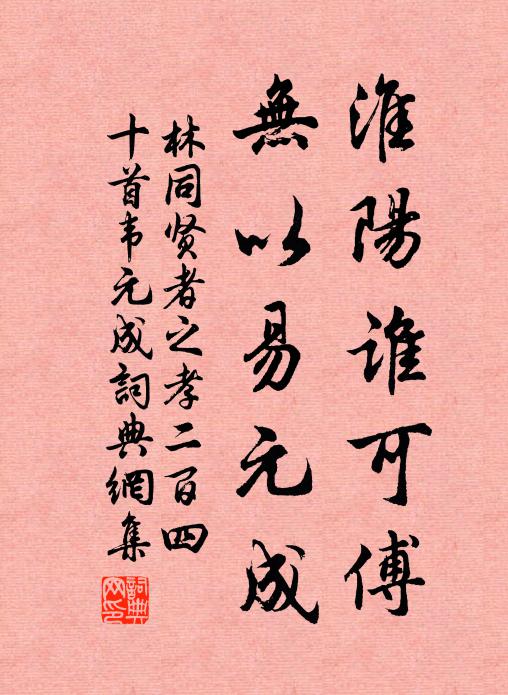 淮陽谁可傅
無以易元成
林同贤者之孝二百四
十首韦元成詞典網集